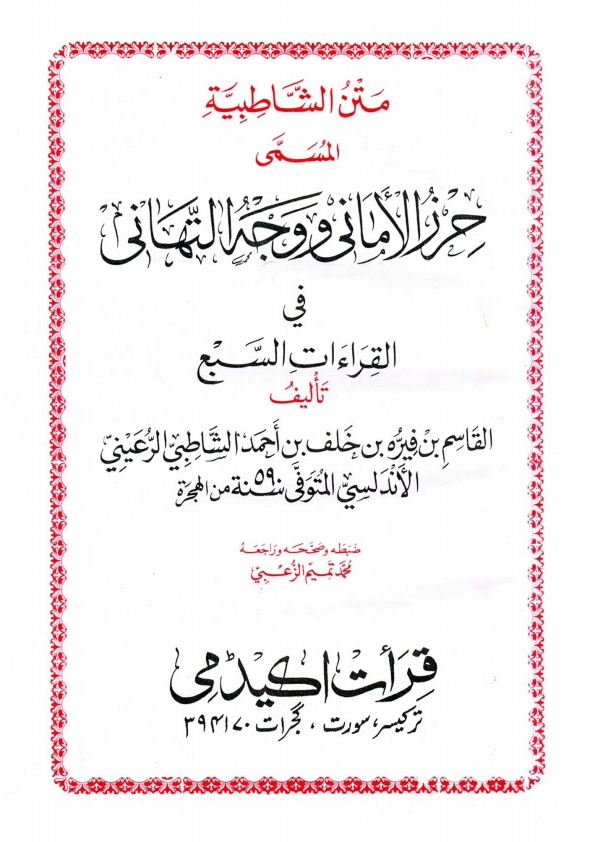 مَتْنُ الشَّاطِبِيَّةِ
المُسَمَّى
حِرْزُ الأَمَانِي وَوَجْهُ التَّهَانِي
فِي
القِرَاءَاتِ السَّبْعِ
تَأْلِيفُ
القَاسِمِ بْنِ فِيرُّه بْنِ خَلَف بْنِ أَحْمَد الشَّاطِبِيِّ الرُّعَيْنِيِّ
الأَنْدَلُسِيِّ المُتَوَفَّى سَنَة ٥٩٠ مِنَ الهِجْرَة
ضَبَطَه وَصَحَّحَه وَرَاجَعَهُ
مُحَمَّد تَمِيم الزُّعْبِيّ
قِرَأت اکیڈمی
ترکیسر، سورت، گجرات ۳۹۴۱۷۰